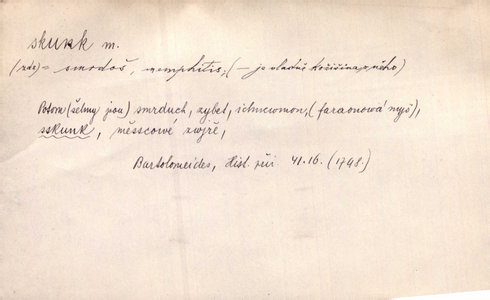 skunk m.
(zde) = smrdoš, memphitis, (— je vlastně kožišina z něho)
Potom (šelmy jsou) smrduch, zybet, ichnewmon, (faraonowá myš),
sskunk, měsscowé zwjře,
Bartolomeides, Hist. při 41.16. (1798.)